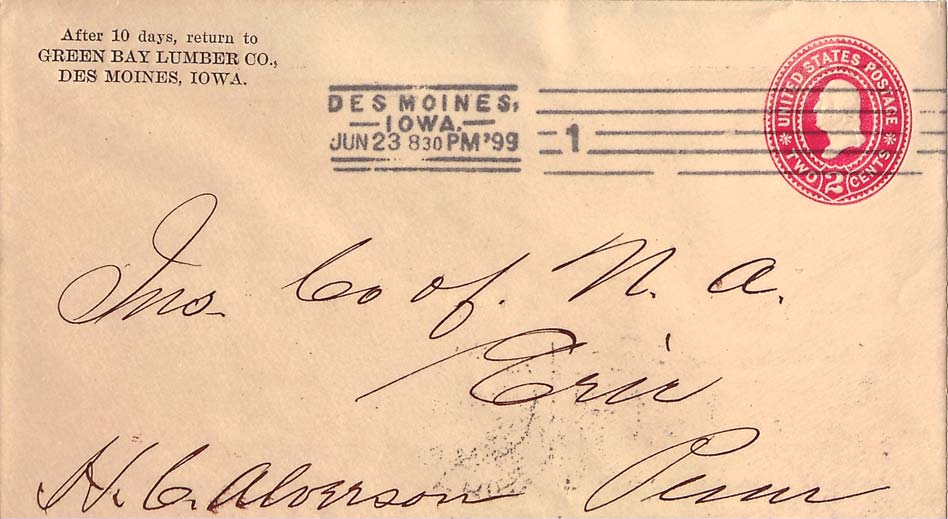 After 10 days, return to
GREEN BAY LUMBER CO.,
DES MOINES, IOWA.
DES MOINES,
IOWA.
JUN 23 830 PM '99
1
UNITED STATES POSTAGE
TWO 2 CENTS
Ins. Co of. N. A.
Erie
H. C. Alverson Penn